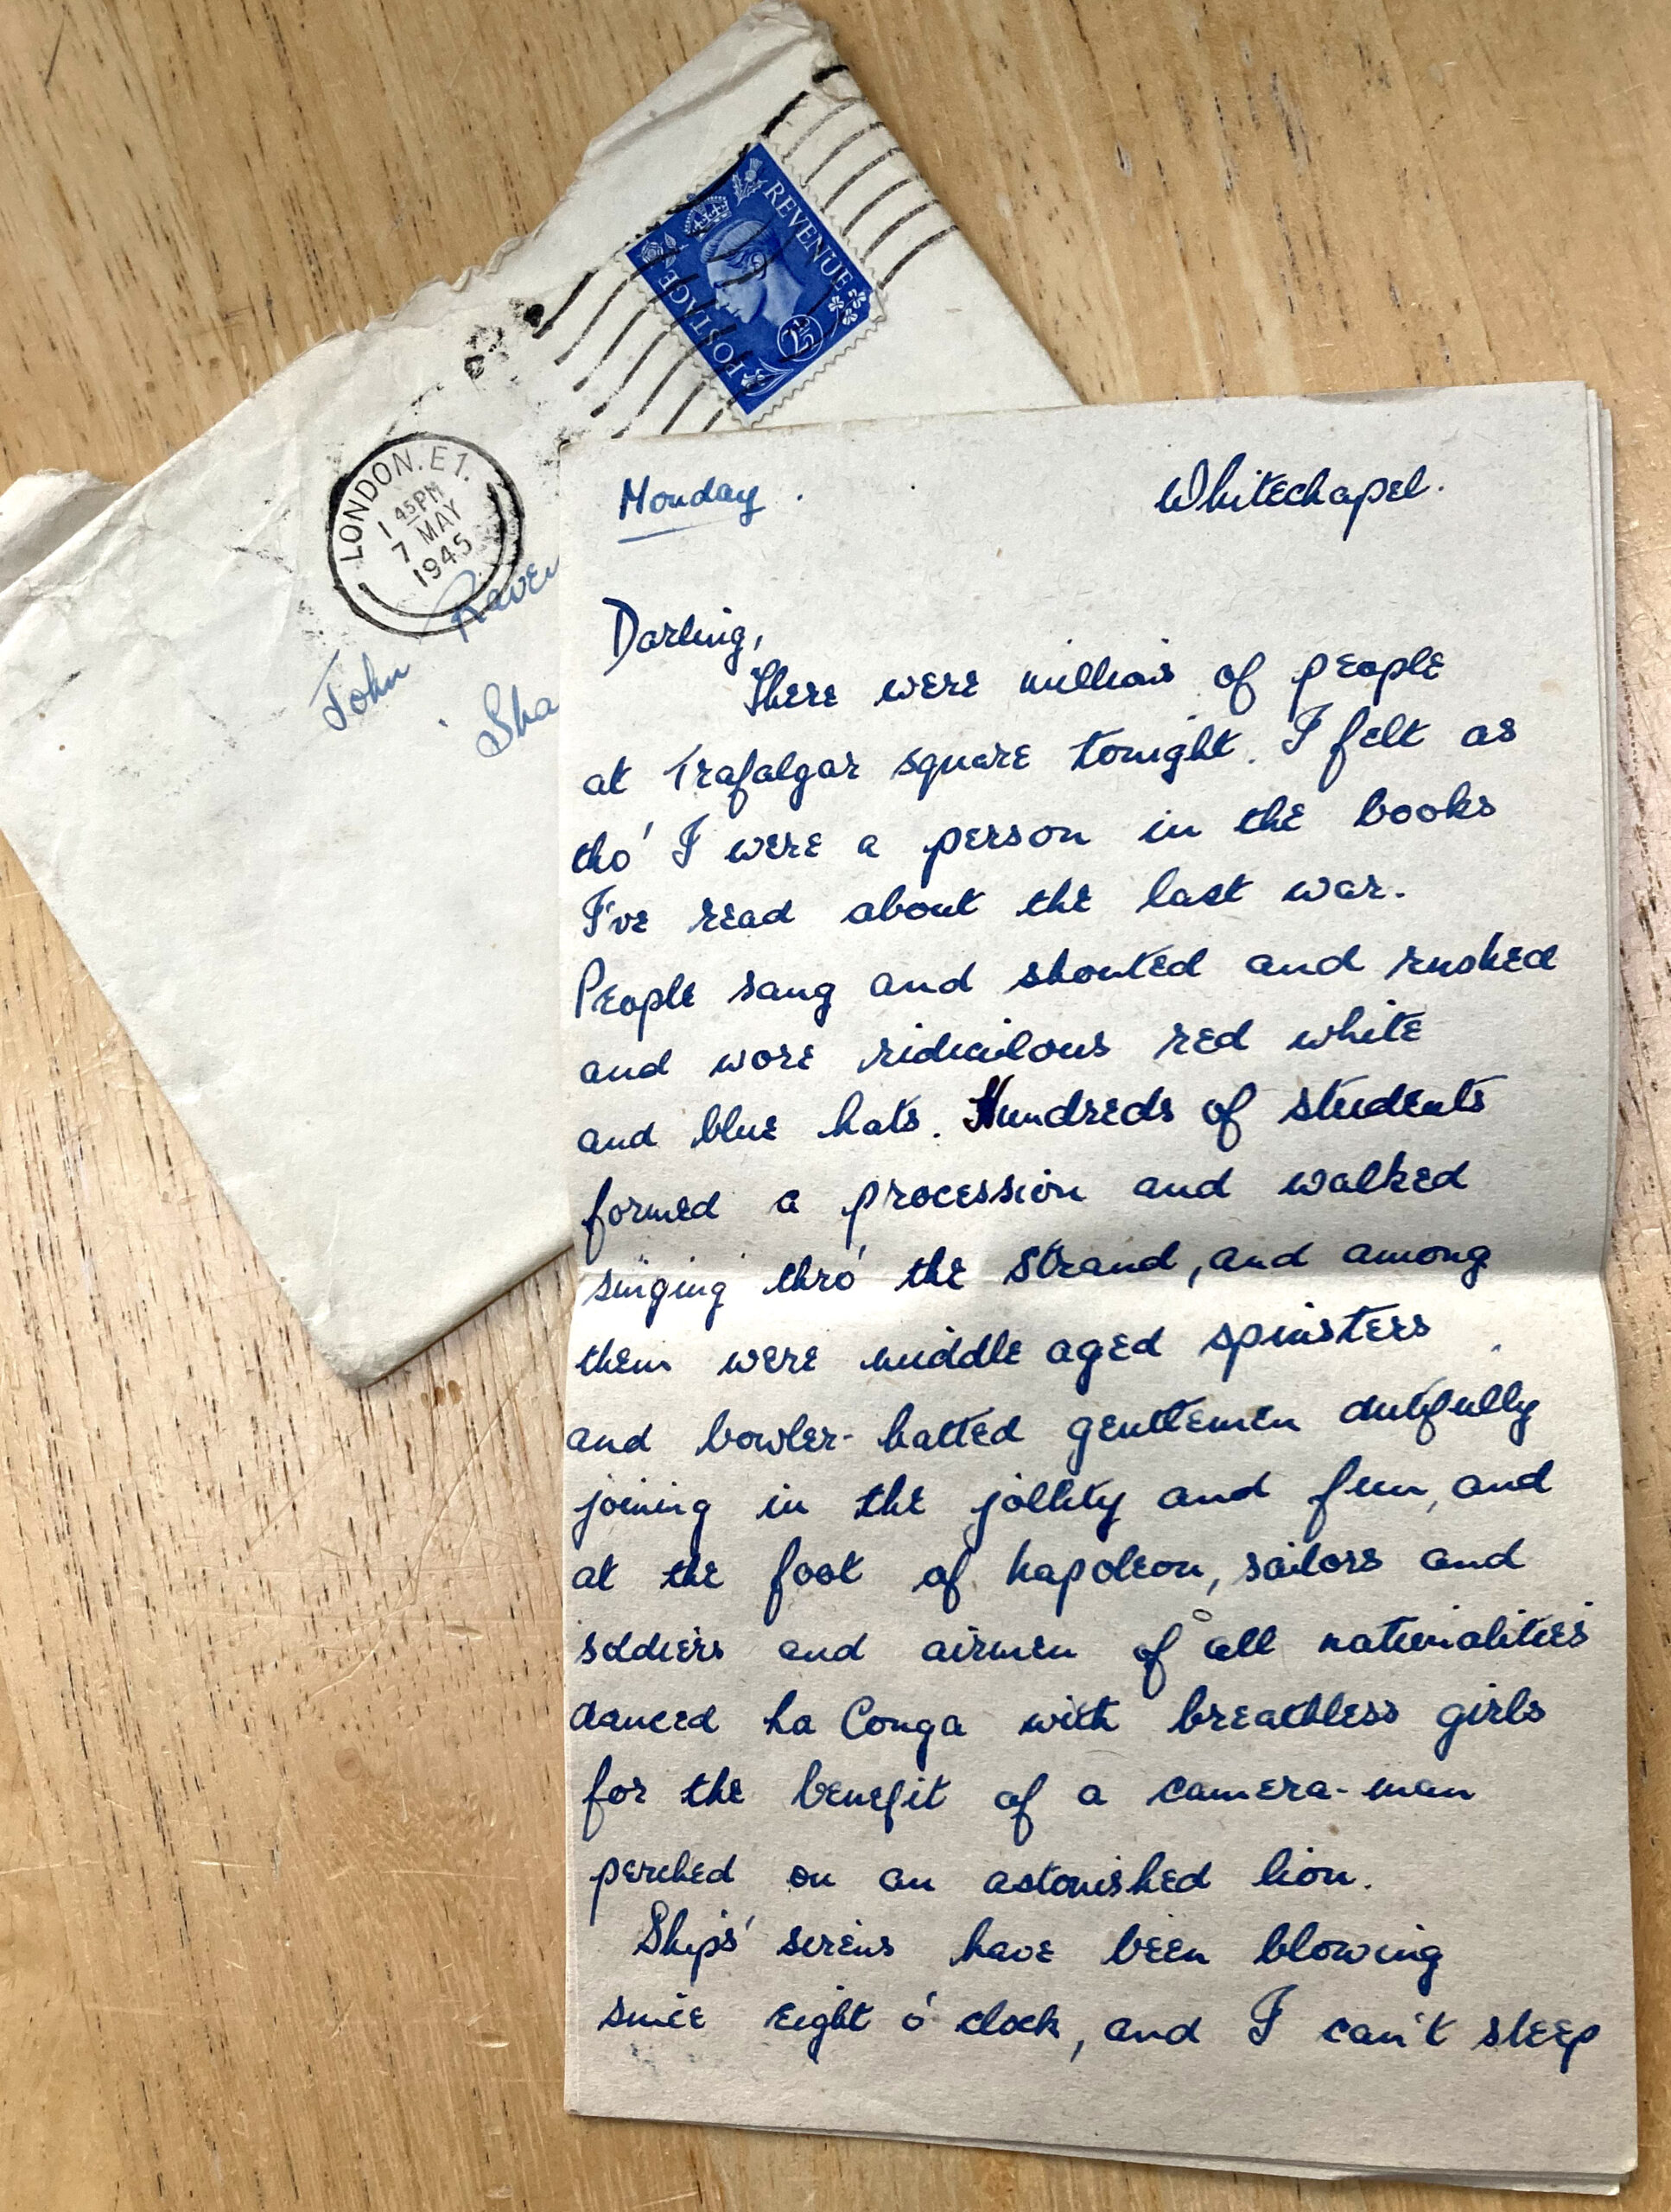 REVENUE
POSTAGE
2½D
LONDON. E1.
1 45PM
7 MAY
1945
John Raven
Sha
Monday. Whitechapel.
Darling,
There were millions of people
at Trafalgar square tonight. I felt as
tho' I were a person in the books
I've read about the last war.
People sang and shouted and rushed
and wore ridiculous red white
and blue hats. Hundreds of students
formed a procession and walked
singing thro' the Strand, and among
them were middle aged spinsters
and bowler-hatted gentlemen dutifully
joining in the jollity and fun, and
at the foot of Napoleon, sailors and
soldiers and airmen of all nationalities
danced La Conga with breathless girls
for the benefit of a camera-man
perched on an astonished lion.
Ships' sirens have been blowing
since eight o'clock, and I can't sleep